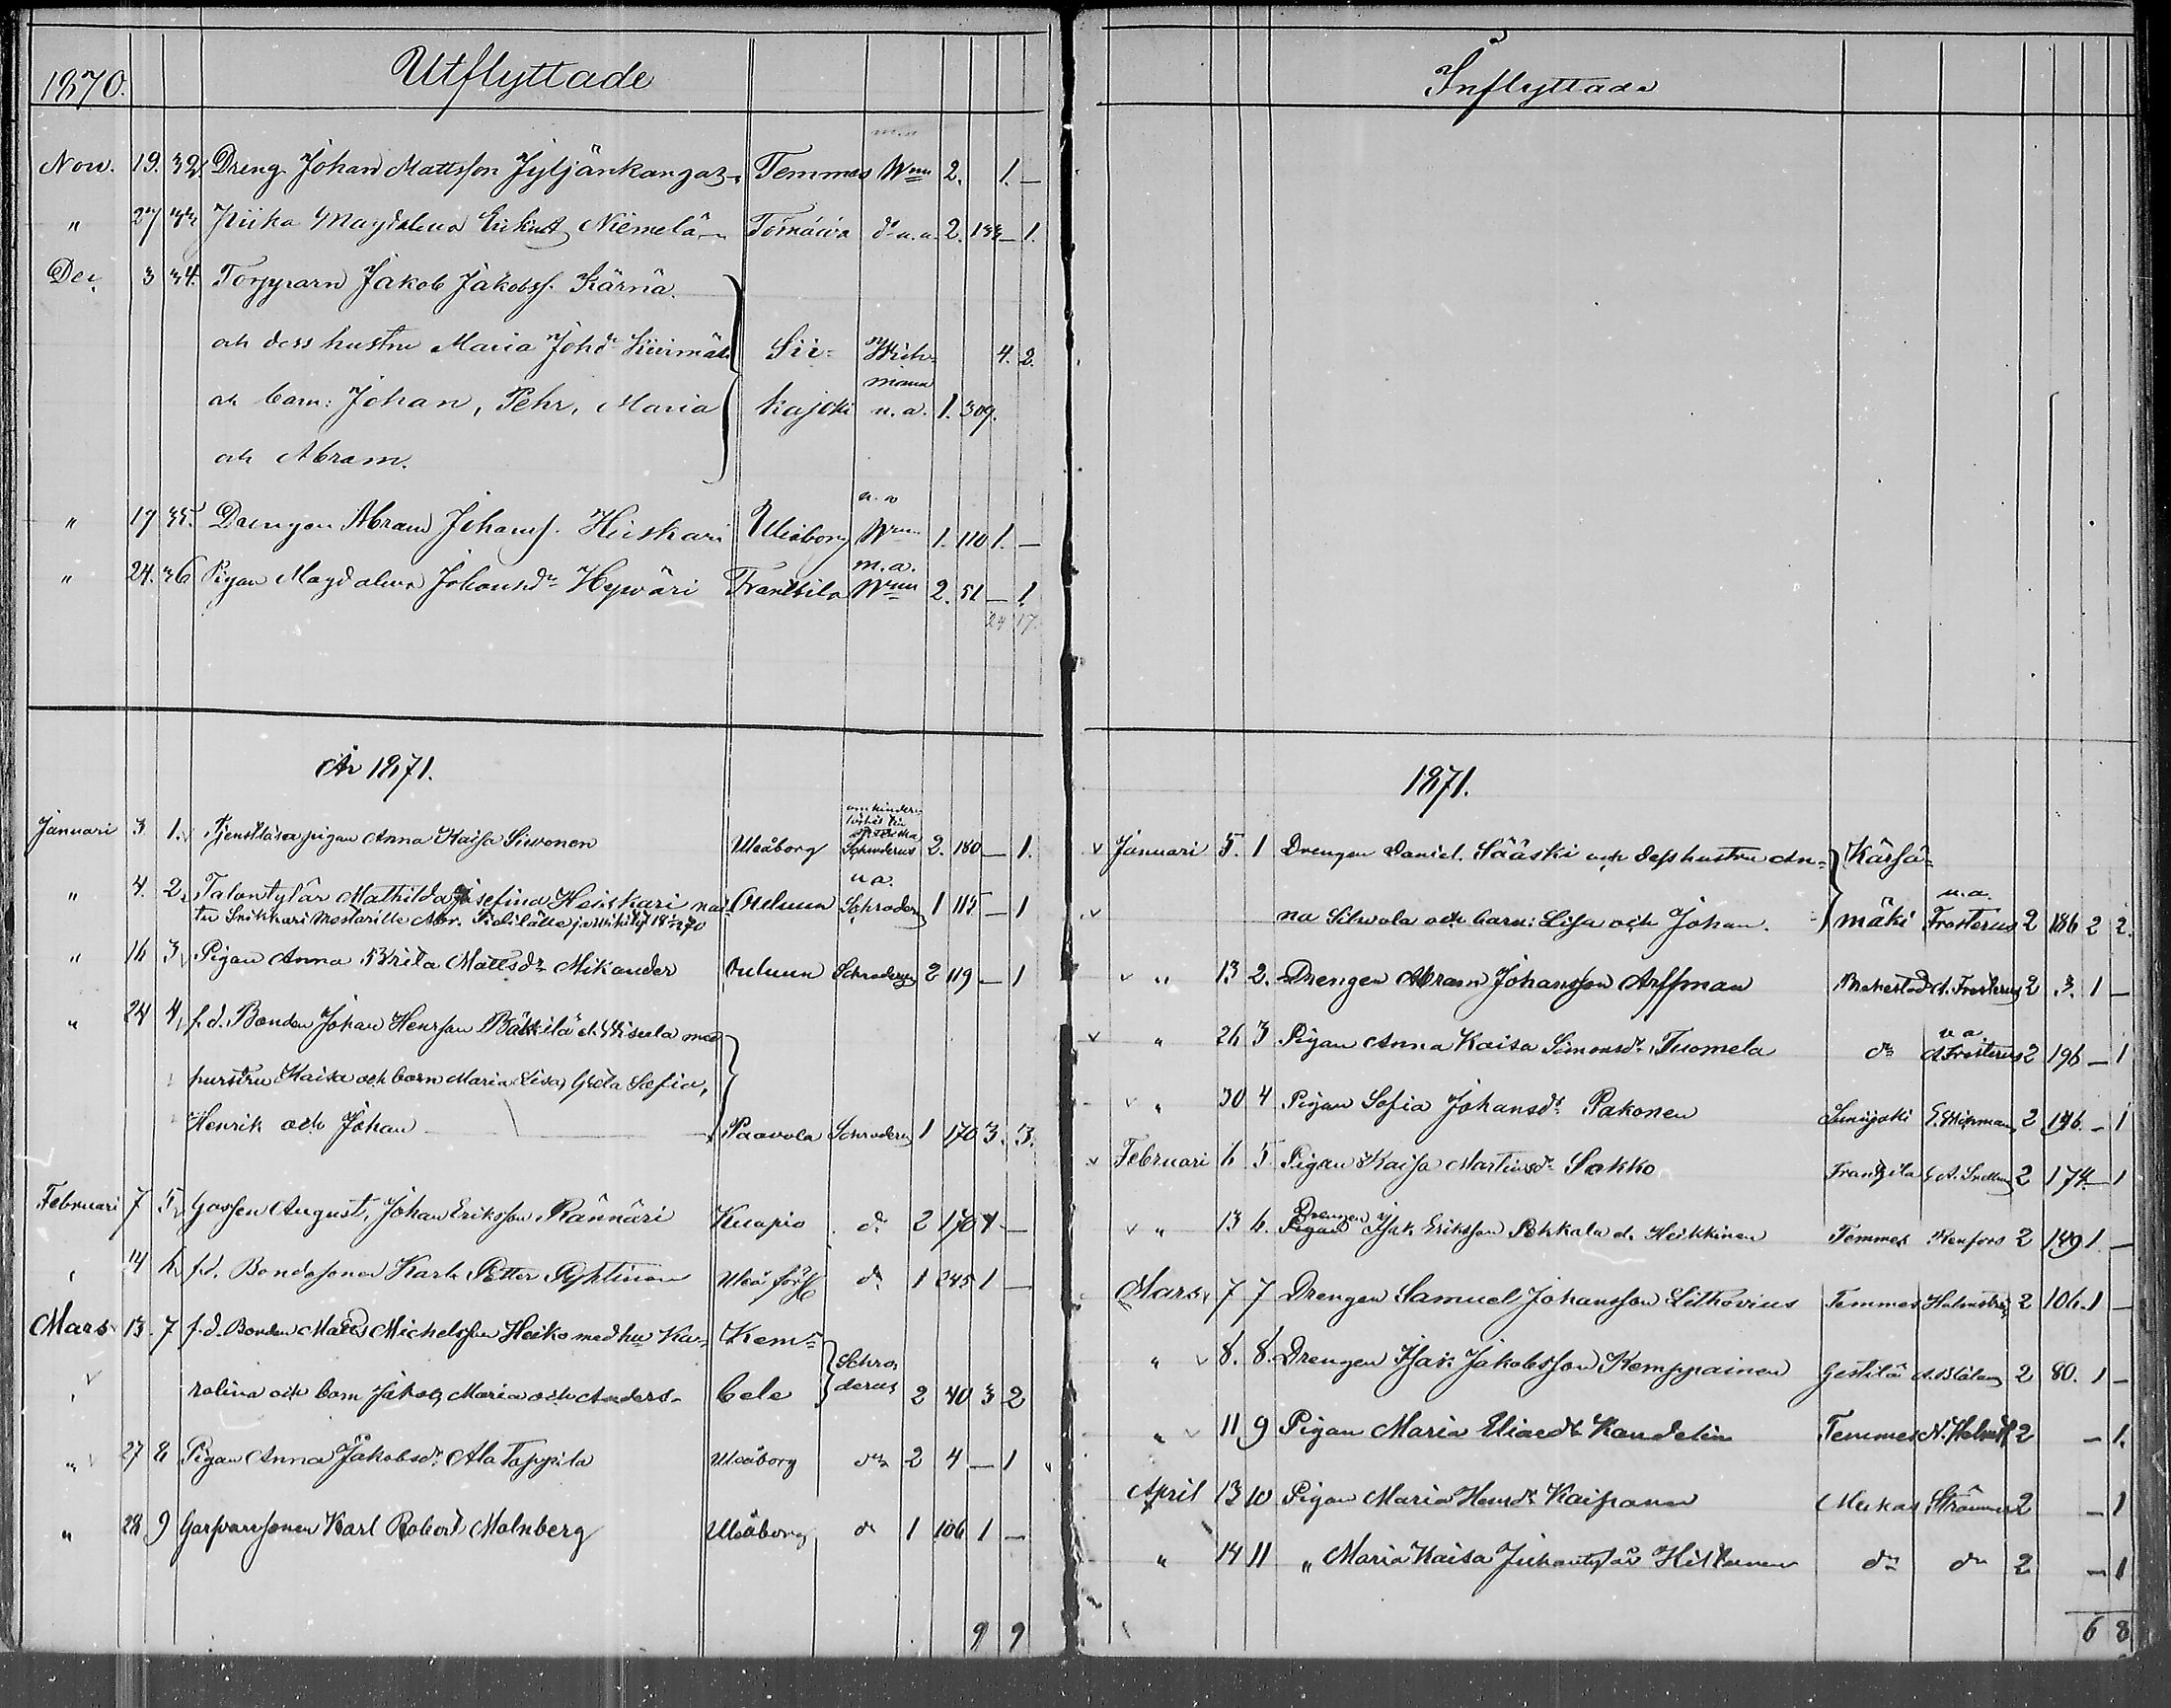 1870.
Utflyttade
Nov. 19. 32. Dreng. Johan Mattsson Jyljänkangas Temmes Wnn 2. 1. —
" 27 33 Magdalena Niemelä Tornäwä do u.a. 2. 133 — 1.
Dec. 3 34. Torpparn Jakob Jakobss. Kärnä.
och dess hustru Maria Johdr Siika- Wich- 4. 2.
mann
och barn: Johan, Pehr, Maria kajoki u.a. 1. 309.
och Abram.
" 19 35. Drengen Abram Johanss. Heiskari Uleåborg Wnn 1. 110 1. —
m.a.
" 24. 36 Pigan Magdalena Johansdr Hywäri Frantsila Wnn 2. 51 — 1
24 17.
År 1871.
Januari 3 1. Tjenstlösa pigan Anna Kaisa Siwonen Uleåborg Schroderus 2. 180 — 1.
u.a.
" 4. 2. Talontytär Mathilda Josefina Heiskari Ouluun Schroderus 1 115 — 1
" 16 3 Pigan Anna Brita Mattsdr Mikander Ouluun Schroderus 2 119 — 1
" 24 4 f.d. Bonden Johan Henrsson med
hustru Kaisa och barn Maria Lisa, Greta Sofia,
Henrik och Johan — Paavola Schroderus 1 170 3. 3.
Februari 7 5 Gossen August, Johan Eriksson Rännäri Kuopio do 2 170 1 —
" 14 6 f.d. Bondesonen Karl Petter Pyhtinen Uleå förs do 1 245 1 —
Mars 13. 7 f.d. Bonden Matts Michelsson Heiko med hu Ka- Kem-
Schro-
rolina och barn Jakob, Maria och Anders. pele derus 2 40 3 2
" 27 8 Pigan Anna Jakobsdr Ala Tappila Uleåborg do 2 4 — 1
" 28 9 Karl Robert Malmberg Uleåborg do 1 106 1 —
9 9
Inflyttade
1871.
v Januari 5. 1 Drengen Daniel Sääski och dess hustru An- Kärsä-
u.a.
v na Silwola och barn: Lisa och Johan. mäki Frosterus 2 186 2 2.
v " 13 2. Drengen Abram Johansson Arffman Brahestad A. Frosterus 2 3. 1 —
u.a.
v " 26 3 Pigan Anna Kaisa Simonsdr Tuomela do A. Frosterus 2 196 — 1
v " 30 4 Pigan Sofia Johansdr Pakonen 2 146. — 1
v Februari 6 5 Pigan Kaisa Martinsdr Sakko Frantsila 2 174 — 1
Drengen
v " 13 6. Pigan Isak Eriksson Pehkala el. Heikkinen Temmes 2 149 1. —
Mars v 7 7 Drengen Samuel Johansson Lithovius Temmes Holmström 2 106. 1 —
" v 8. 8. Drengen Isak Jakobsson Kemppainen Gestilä 2 80. 1 —
" v 11 9 Pigan Maria Eliaedr Kandelin Temmes 2 — 1.
April 13 10 Pigan Maria Henrdr Kaipanen Muhos 2 — 1
" 14 11 " Maria Kaisa Juhantytär do do 2 — 1
6 8